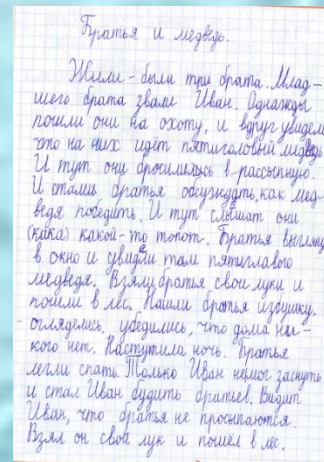 Братья и медведь.
Жили-были три брата. Млад-
шего брата звали Иван. Однажды
пошли они на охоту, и вдруг увидели
что на них идёт пятиголовый медведь
И тут они бросились в-рассыпную.
И стали братья обсуждать, как мед-
ведя победить. И тут слышат они
(кака) какой-то топот. Братья выгляну
в окно и увидели там пятиглавого
медведя. Взяли братья свои луки и
пошли в лес. Нашли братья избушку.
огляделись, убедились, что дома ни-
кого нет. Наступила ночь. Братья
легли спать. Только Иван немог заснуть
и стал Иван будить братьев. Видит
Иван, что братья не просыпаются.
Взял он свой лук и пошёл в лес.